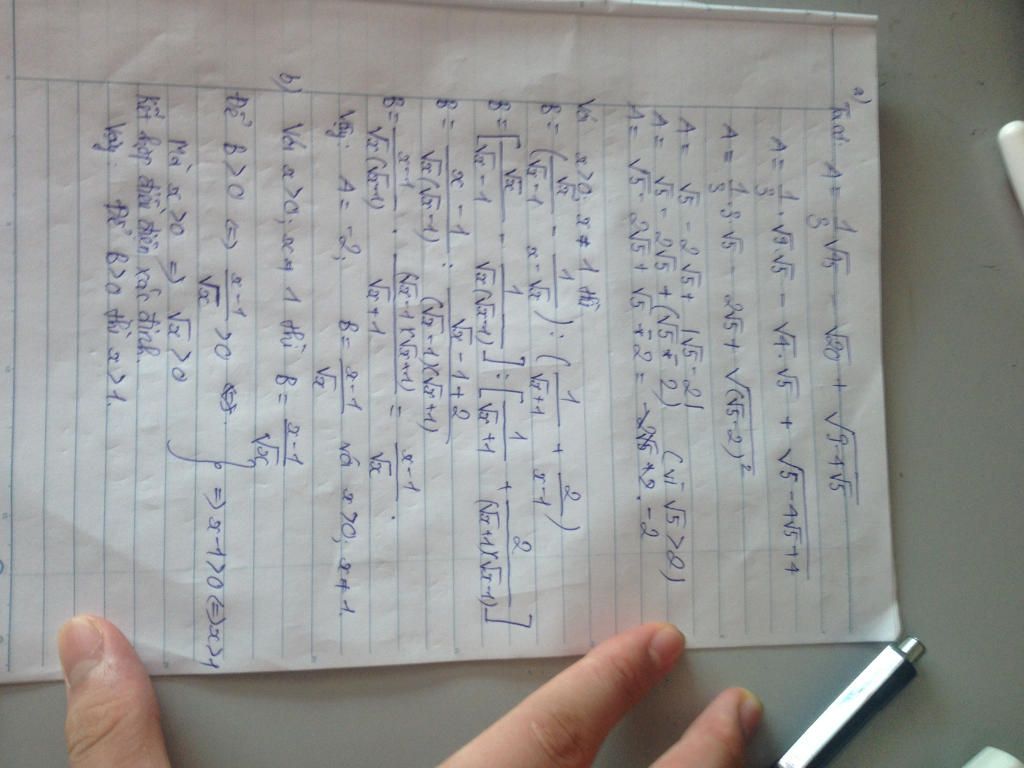 a)
Ta có: A = 1/3 √45 - √20 + √(9-4√5)
A = 1/3 . √9.√5 - √4.√5 + √(5-4√5+4)
A = 1/3 . 3√5 - 2√5 + √((√5-2)²)
A = √5 - 2√5 + |√5-2|
A = √5 - 2√5 + (√5-2) (vì √5>2)
A = √5 - 2√5 + √5 - 2 = -2
Với x>0; x≠1 thì
B = (√x/(√x-1) - 1/(x-√x)) : (1/(√x+1) + 2/(x-1))
B = [√x/(√x-1) - 1/(√x(√x-1))] : [1/(√x+1) + 2/((√x+1)(√x-1))]
B = (x-1)/(√x(√x-1)) : (√x-1+2)/((√x-1)(√x+1))
B = (x-1)/(√x(√x-1)) . ((√x-1)(√x+1))/(√x+1) = (x-1)/√x .
Vậy: A = -2; B = (x-1)/√x với x>0; x≠1.
b) Với x>0; x≠1 thì B = (x-1)/√x
Để B>0 <=> (x-1)/√x >0
Mà x>0 => √x >0 } => x-1>0 <=> x>1
Kết hợp điều kiện xác định
Vậy: Để B>0 thì x>1.